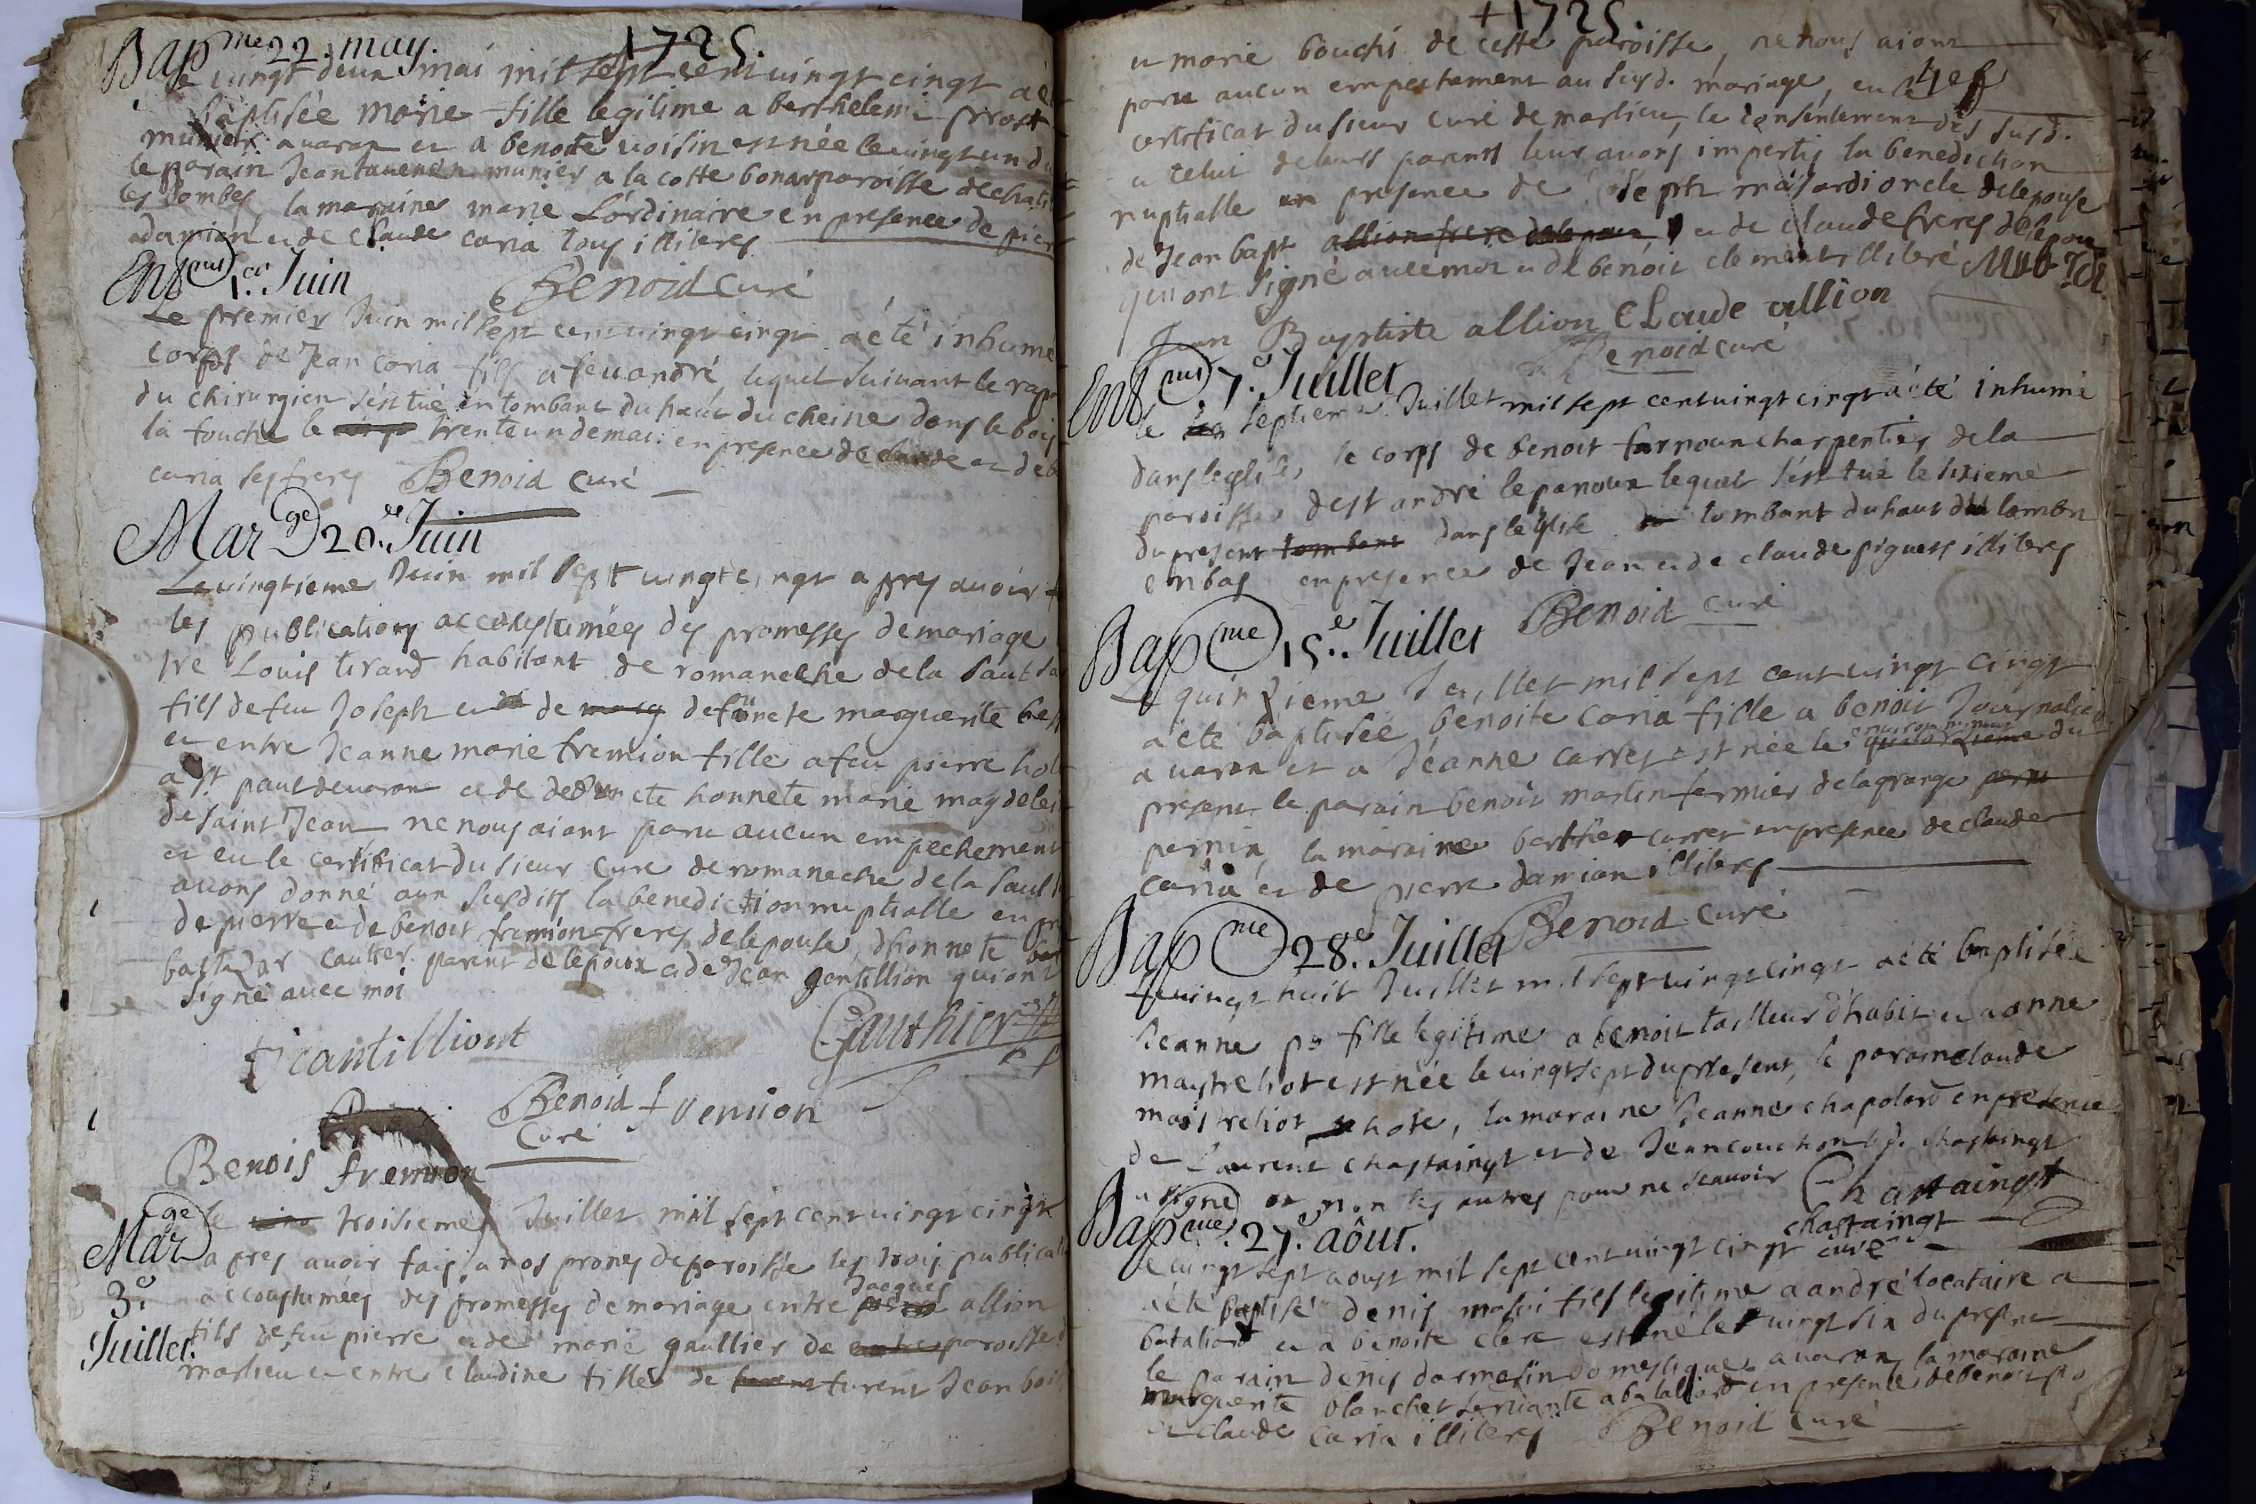 Bap me 22. may. 1725.
Le vingt deux mai mil sept cent vingt cinqt a été
baptisée marie fille legitime a berthelemi prost
munier a varax et a benoite voisin est née le vingt un du
le parain Jean munier a la cotte bonar paroisse de chati
les dombes, la maraine marie Lordinaire en presence de pier
damian et de claude caria tous illiteres
Benoid curé
Ent mt 1er Juin
Le premier Juin mil sept cent vingt cinqt a été inhumé
corps de Jean caria fils a feu andré, lequel suivant le rapo
du chirurgien s'est tué en tombant du haut du cheine dans le bois
la fouche le trente un de mai en presence de claude et de b
caria ses freres Benoid curé
Mar ge 20.e Juin
Le vingtieme Juin mil sept vingt cinqt apres avoir f
les publications accoustumées des promesses de mariage
tre Louis tirard habitant de romaneche de la Saut
fils de feu Joseph et de defuncte marguerite
et entre Jeanne marie fremion fille a feu pierre hot
a St. paul de varax et de defuncte honnete marie magdelei
de saint Jean ne nous aiant paru aucun empechement
et eu le certificat du sieur curé de romaneche de la Saul
avons donné aux susdits la benediction nuptialle en pr
de pierre et de benoit fremion freres de lepouse, dhonnete
cautier parent de lepoux et de Jean gentillion qui ont
signé avec moi
Gauthier
Benoid fremion
Curé
Benois fremion
Mar ge
3.e
Juillet.
le troisieme Juillet mil sept cent vingt cinqt
apres avoir fais a nos prones de paroisse les trois publicati
accoustumées des promesses de mariage entre Jacques allion
fils de feu pierre et de marie gaullier de paroisse
marlieu et entre claudine fille de furent Jean boi
+1725.
et marie bouchi de cette paroisse, ne nous aiant
paru aucun empechement au susd. mariage, eu le
certificat du sieur curé de marlieu, le consentement des susd.
et celui de leurs parents leur avons imparti la benediction
nuptialle en presence de Joseph oncle de lepouse
de Jean bapt allion frere de lepoux et de claude freres de lepoux
qui ont signé avec moi et de benoit clement illiteré
Jean Baptiste allion CLaude allion
Benoid curé
Ent mt 7.e Juillet
le septieme Juillet mil sept cent vingt cinqt a été inhumé
dans leglise, le corps de benoit farnoux charpentier de la
paroisse de st andré le panoux lequel s'est tué le sixieme
du present tombant dans leglise tombant du haut du lambri
en bas en presence de Jean et de claude piguets illiteres
Benoid curé
Bap me 15.e Juillet
Le quinzieme Juillet mil sept cent vingt cinqt
a été baptisée benoite caria fille a benoit Journalier
a varax et a Jeanne carret est née le quatorzieme du
present le parain benoit martin fermier de la grange
pernin, la maraine berthe carret en presence de claude
caria et de pierre damian illiteres
Benoid curé
Bap me 28.e Juillet
Le vingt huit Juillet mil sept vingt cinqt a été baptisée
Jeanne fille legitime a benoit tailleur d'habit et a anne
maytrehot est née le vingt sept du present, le parain claude
maistrehot hote, la maraine Jeanne chapolard en presence
de Laurent chastaingt et de Jean couchon led. chastaingt
a signé et non les autres pour ne scavoir Chastaingt
chastaingt
curé
Bap me. 27.e aôut.
Le vingt sept aoust mil sept cent vingt cinqt
a été baptisé denis fils legitime a andré locataire a
bataliard et a benoite clerc est né le vingt six du present
le parain denis darmesin domestique a varax, la maraine
marguerite blanchet servante a bataliard en presence de benoit
et claude caria illiteres Benoid curé